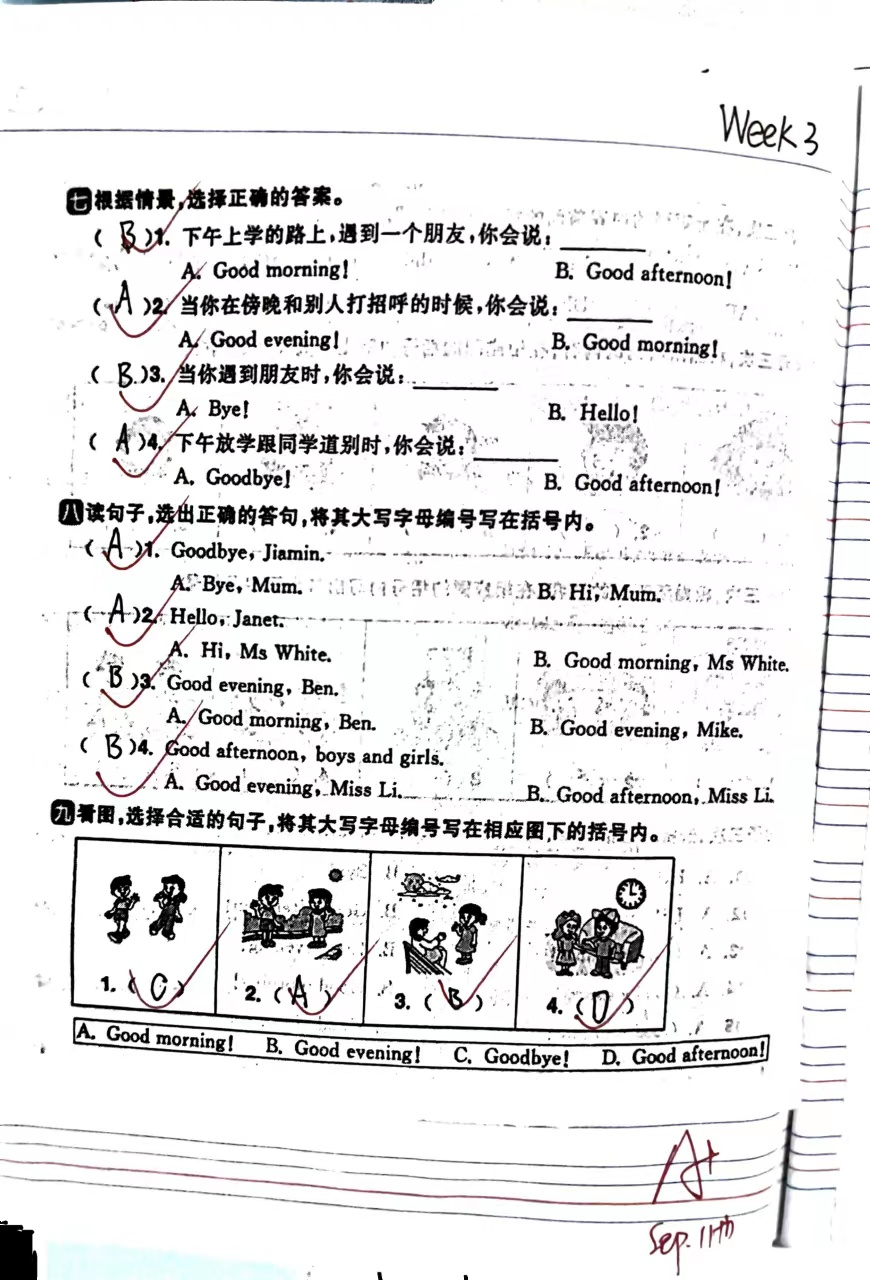 Week 3
七 根据情景,选择正确的答案。
( B )1. 下午上学的路上,遇到一个朋友,你会说:________
A. Good morning! B. Good afternoon!
( A )2. 当你在傍晚和别人打招呼的时候,你会说:________
A. Good evening! B. Good morning!
( B )3. 当你遇到朋友时,你会说:________
A. Bye! B. Hello!
( A )4. 下午放学跟同学道别时,你会说:________
A. Goodbye! B. Good afternoon!
八 读句子,选出正确的答句,将其大写字母编号写在括号内。
( A )1. Goodbye, Jiamin.
A. Bye, Mum. B. Hi, Mum.
( A )2. Hello, Janet.
A. Hi, Ms White. B. Good morning, Ms White.
( B )3. Good evening, Ben.
A. Good morning, Ben. B. Good evening, Mike.
( B )4. Good afternoon, boys and girls.
A. Good evening, Miss Li. B. Good afternoon, Miss Li.
九 看图,选择合适的句子,将其大写字母编号写在相应图下的括号内。
1. ( C ) 2. ( A ) 3. ( B ) 4. ( D )
A. Good morning! B. Good evening! C. Goodbye! D. Good afternoon!
A+
Sep. 11th